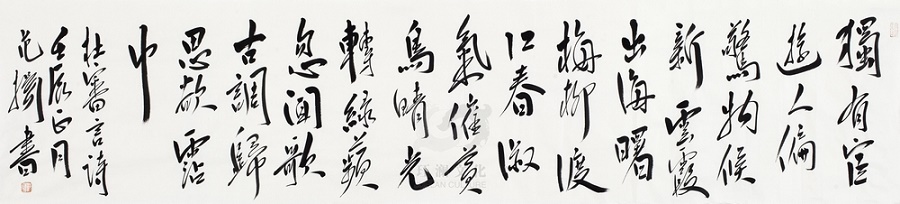 獨有宦
遊人偏
驚物候
新雲霞
出海曙
梅柳渡
江春淑
氣催黄
鳥晴光
轉綠蘋
忽聞歌
古調歸
思欲霑
巾
杜審言詩
壬辰正月
范書